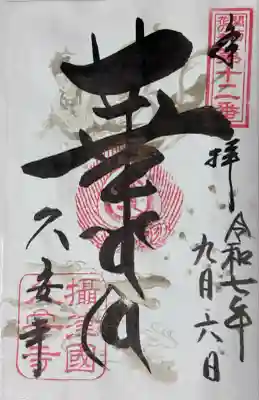 第十二番
奉拝
令和七年
九月六日
華
久安寺
攝津國
久安寺